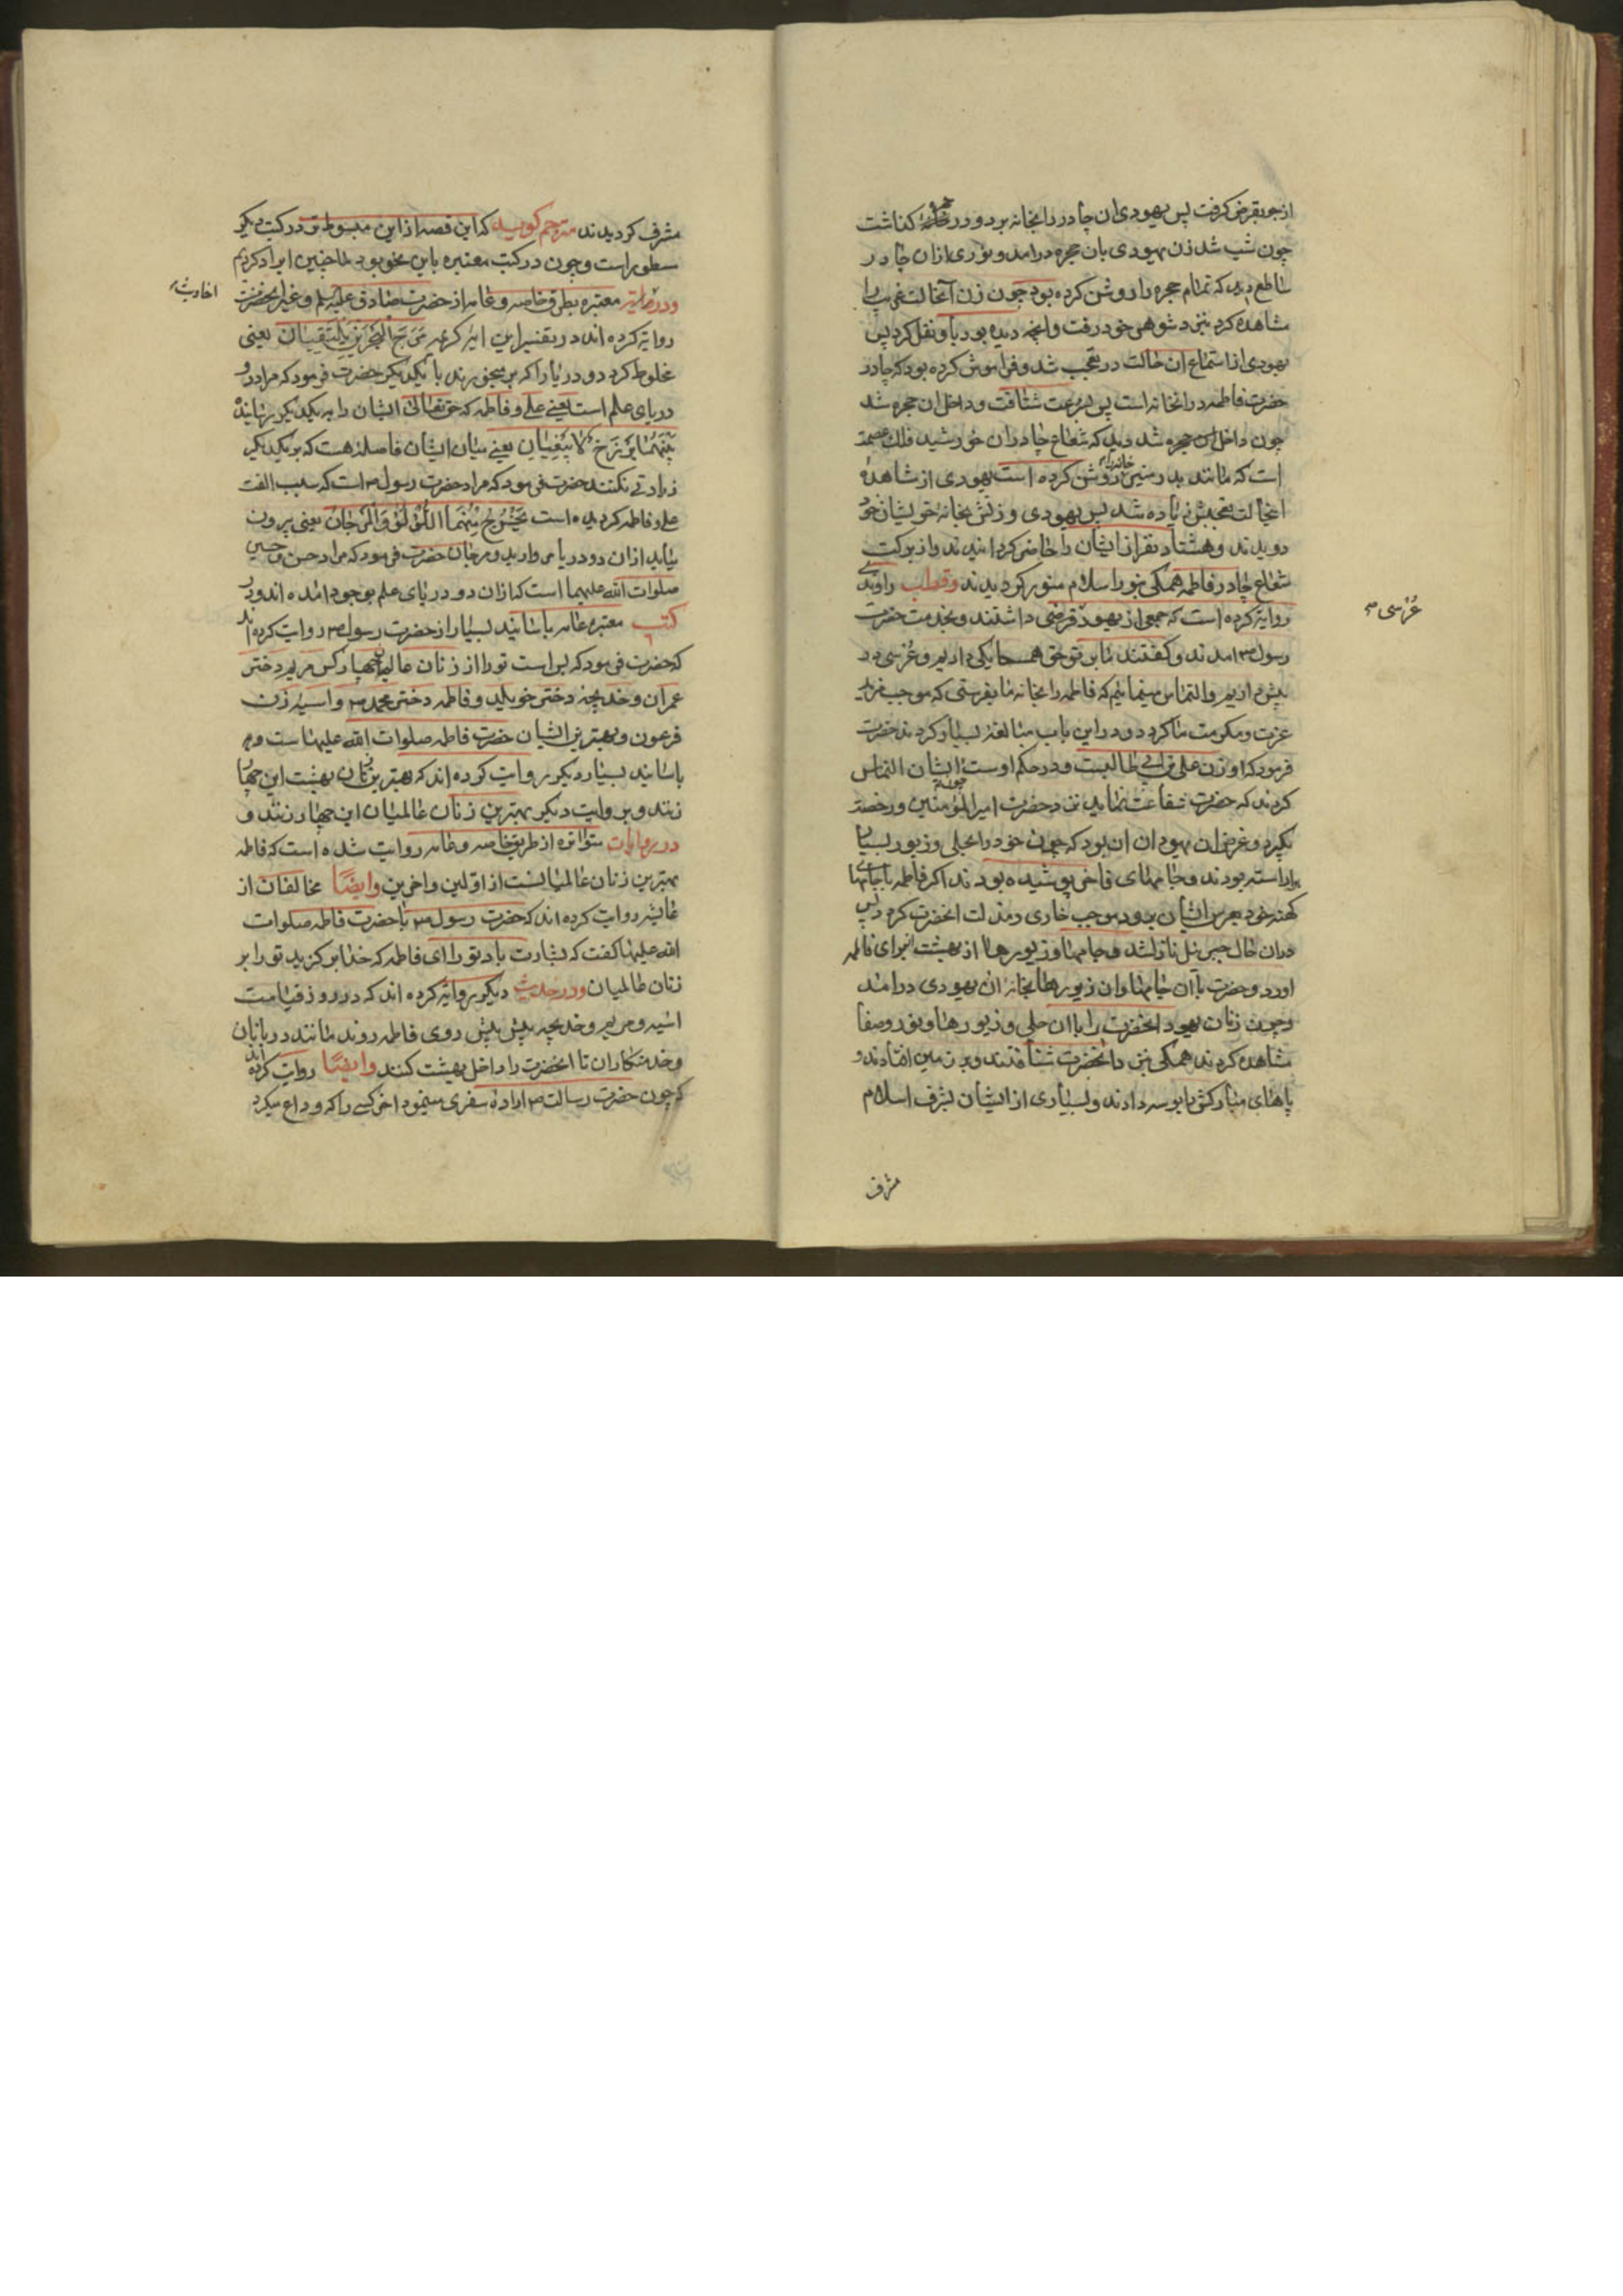 از جو بقرض کرفت پس یهودی ان چادر را بخانه برد و در حجره کذاشت
چون شب شد زن یهودی بان حجره درامد و نوری ازان چادر
ساطع دید که تمام حجره را روشن کرده بود چون زن آنحالت غریب را
مشاهده کرد بنزد شوهر خود رفت و انچه دیده بود باو نقل کرد پس
یهودی از استماع ان حالت در تعجب شد و فراموش کرده بود که چادر
حضرت فاطمه در انخانه است پس بسرعت شتافت و داخل ان حجره شد
چون داخل ان حجره شد دید که شعاع چادر ان خورشید فلک عصمت
است که مانند بدر منیر خانه را روشن کرده است یهودی از مشاهده
انحالت تعجبش زیاده شد پس یهودی و زنش بخانه خویشان خود
دویدند و هشتاد نفر از ایشان را حاضر کردانیدند و از برکت
شعاع چادر فاطمه همکی بنور اسلام منور کردیدند وقطب راوندی
روایة کرده است که جمعی از یهود قرضی داشتند و بخدمت حضرت
رسول ص امدند و کفتند ما بر تو حق همسایکی داریم و عُرسی در
عُرسی ص
پیش داریم و التماس مینمائیم که فاطمه را بخانه ما بفرستی که موجب مزید
عزت و مکرمت ما کردد و در این باب مبالغه بسیار کردند حضرت
فرمود که او زن علی بن ابی طالبست و در حکم اوست ایشان التماس
کردند که حضرت شفاعت نماید نزد حضرت امیرالمؤمنین و رخصت
بکیرد و غرض ان یهودان ان بود که چون خود را بحلی و زیور بسیار
اراسته بودند و جامهای فاخر پوشیده بودند اکر فاطمه با جامهای
کهنه خود بعرس ایشان برود موجب خاری و مذلت انحضرت کردد پس
دران حال جبرئیل نازل شد و جامها و زیورها از بهشت برای فاطمه
اورد و حضرت با آن جامها و ان زیورها بخانه ان یهودی درامد
و چون زنان یهود انحضرت را با ان حلی و زیورها و نور و صفا
مشاهده کردند همکی بنزد انحضرت شتافتند و بر زمین افتادند و
پاهای مبارکش را بوسه دادند و بسیاری از ایشان بشرف اسلام
مشرف
مشرف کردیدند مترجم کوید که این قصه از این مبسوط تر در کتب دیکر
مسطور است و چون در کتب معتبره باین نحو بود لهذا چنین ایراد کردیم
احادیث
ودر معتبره بطرق خاصه و عامه از حضرت صادق علیه السلم و غیر انحضرت
روایة کرده اند در تفسیر این ایه کریمه مَرَجَ الْبَحْرَیْنِ یَلْتَقِیَانِ یعنی
مخلوط کرد دو دریا را که بر میخورند با یکدیکر حضرت فرمود که مراد دو
دریای علم است یعنی علی و فاطمه که حق تعالی ایشان را به یکدیکر رسانید
بَیْنَهُمَا بَرْزَخٌ لَا یَبْغِیَانِ یعنی میان ایشان فاصله هست که بر یکدیکر
زیادتی نکنند حضرت فرمود که مراد حضرت رسول ص است که سبب الفت
علی و فاطمه کردیده است یَخْرُجُ مِنْهُمَا اللُّؤْلُؤُ وَالْمَرْجَانُ یعنی بیرون
میاید ازان دو دریا مروارید و مرجان حضرت فرمود که مراد حسن و حسین
صلوات الله علیهما است که ازان دو دریای علم بوجود امده اند و در
کتب معتبره عامه باسانید بسیار از حضرت رسول ص روایت کرده اند
که حضرت فرمود که بس است تو را از زنان عالمیان چهار کس مریم دختر
عمران و خدیجه دختر خویلد و فاطمه دختر محمد ص و اسیه زن
فرعون و بهترین ایشان حضرت فاطمه صلوات الله علیها است و
باسانید بسیار دیکر روایت کرده اند که بهترین زنان بهشت این چهار
زنند و بروایت دیکر بهترین زنان عالمیان این چهار زنند و
در روایات متواتره از طریق خاصه و عامه روایت شده است که فاطمه
بهترین زنان عالمیانست از اولین و اخرین وایضًا مخالفان از
عایشه روایت کرده اند که حضرت رسول ص با حضرت فاطمه صلوات
الله علیها کفت که بشارت باد تو را ای فاطمه که خدا بر کزید تو را بر
زنان عالمیان ودر حدیث دیکر روایة کرده اند که در روز قیامت
اسیه و مریم و خدیجه پیش پیش روی فاطمه روند مانند دربانان
و خدمتکاران تا انحضرت را داخل بهشت کنند وایضًا روایت کرده اند
که چون حضرت رسالت ص اراده سفری مینمود اخر کسی را که وداع میکرد